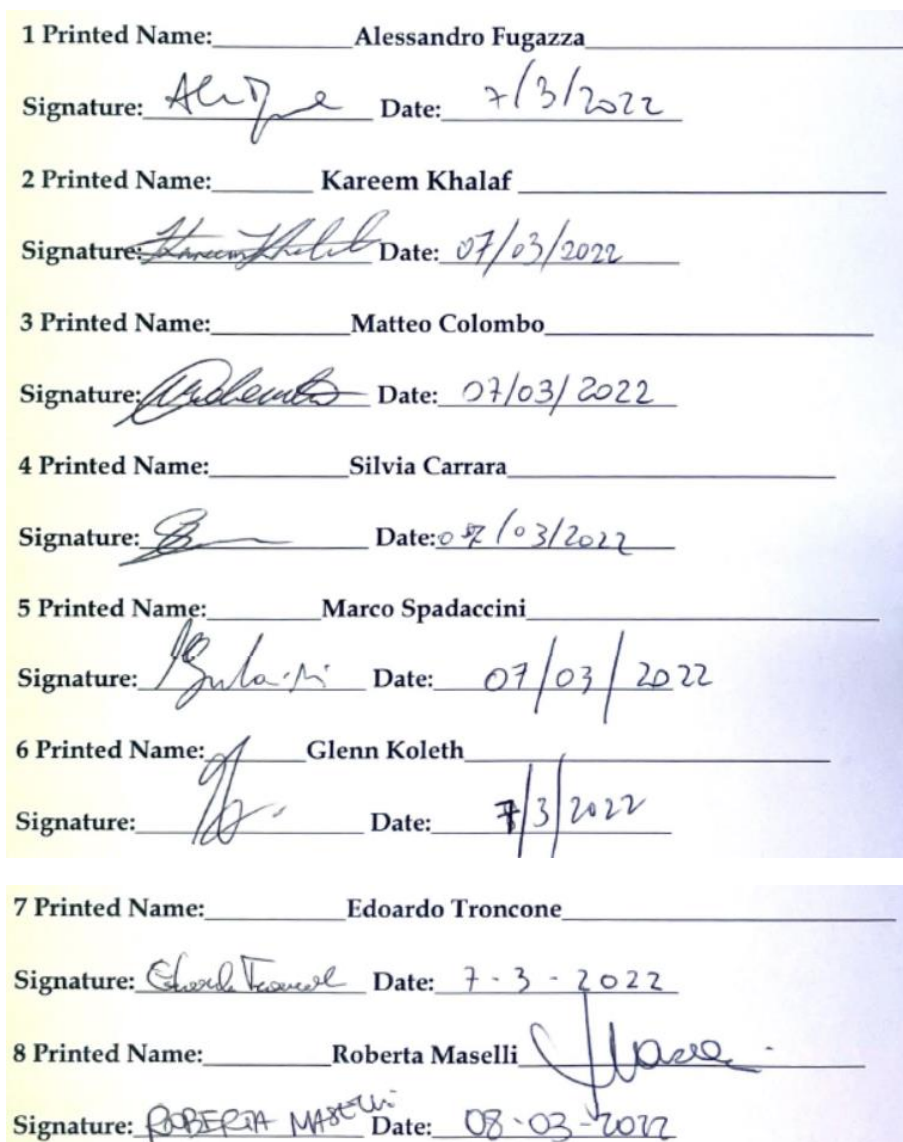 1 Printed Name:__________Alessandro Fugazza__________
Signature:__________ Date: 7/3/2022
2 Printed Name:__________ Kareem Khalaf __________
Signature: Kareem Khalaf Date: 07/03/2022
3 Printed Name:__________Matteo Colombo__________
Signature:__________ Date: 07/03/2022
4 Printed Name:__________Silvia Carrara__________
Signature:__________ Date: 07/03/2022
5 Printed Name:__________Marco Spadaccini__________
Signature:__________ Date: 07/03/2022
6 Printed Name:__________Glenn Koleth__________
Signature:__________ Date: 7/3/2022
7 Printed Name:__________Edoardo Troncone__________
Signature:__________ Date: 7-3-2022
8 Printed Name:__________Roberta Maselli__________
Signature: ROBERTA MASELLI Date: 08-03-2022